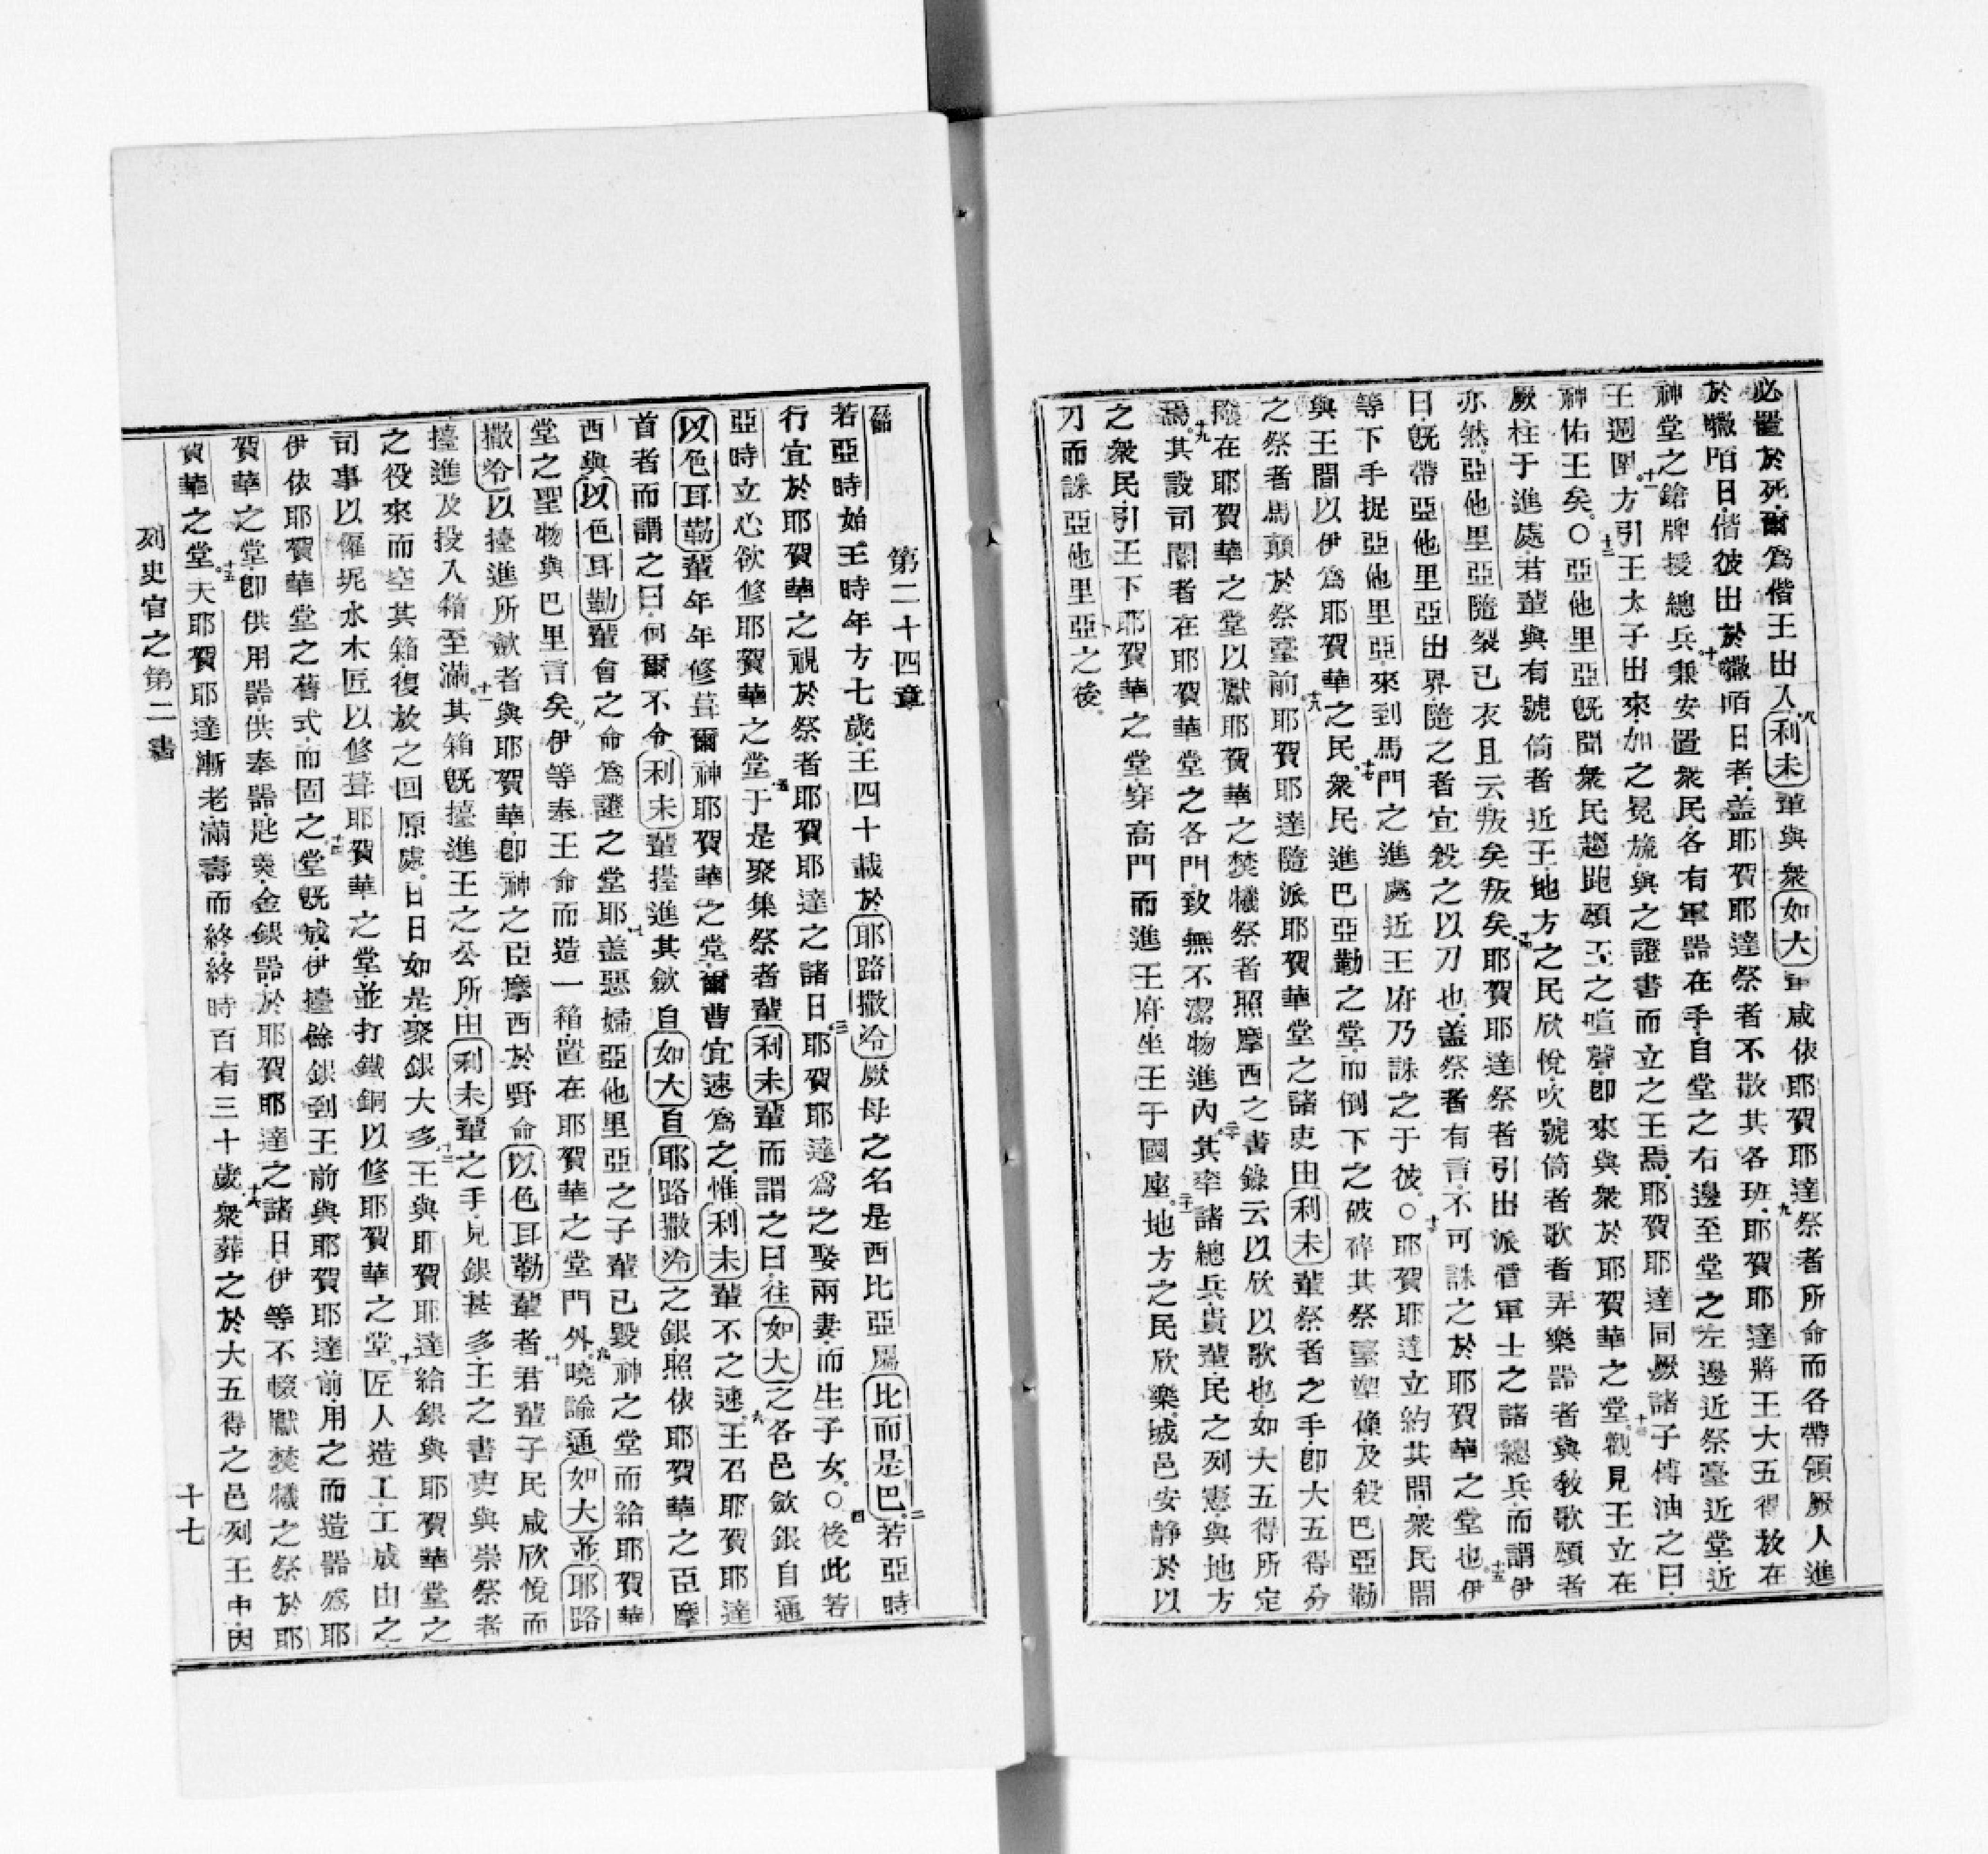 必置於死爾爲偕王出入八利未輩與衆如大輩咸依耶賀耶達祭者所命而各帶領厥人進
於𠾐陌日偕彼出於𠾐陌日者盖耶賀耶達祭者不散其各班九耶賀耶達將王大五得放在
神堂之鎗牌授總兵十兼安置衆民各有軍器在手自堂之右邊至堂之左邊近祭臺近堂近
王週圍十一方引王太子出來加之冕旒與之證書而立之王焉耶賀耶達同厥諸子傅油之曰
神佑王矣〇十二亞他里亞旣聞衆民趨跑頌王之喧聲卽來與衆於耶賀華之堂十三觀見王立在
厥柱于進處君輩與有號筒者近王地方之民欣悅吹號筒者歌者弄樂器者與敎歌頌者
亦然亞他里亞隨裂己衣且云叛矣叛矣十四耶賀耶達祭者引出派管軍士之諸總兵而謂伊
曰旣帶亞他里亞出界隨之者宜殺之以刀也盖祭者有言不可誅之於耶賀華之堂也十五伊
等下手捉亞他里亞來到馬門之進處近王府乃誅之于彼〇十六耶賀耶達立約其間衆民間
與王間以伊爲耶賀華之民十七衆民進巴亞勒之堂而倒下之破碎其祭臺塑像及殺巴亞勒
之祭者馬顛於祭臺前十八耶賀耶達隨派耶賀華堂之諸吏由利未輩祭者之手卽大五得分
撥在耶賀華之堂以獻耶賀華之焚犧祭者照摩西之書錄云以欣以歌也如大五得所定
焉十九其設司閽者在耶賀華堂之各門致無不潔物進內二十其率諸總兵貴輩民之列憲與地方
之衆民引王下耶賀華之堂穿高門而進王府坐王于國座二十一地方之民欣樂城邑安靜於以
刀而誅亞他里亞之後
第二十四章
若亞時始王時年方七歲王四十載於耶路撒冷厥母之名是西比亞屬比而是巴二若亞時
行宜於耶賀華之視於祭者耶賀耶達之諸日三耶賀耶達爲之娶兩妻而生子女〇四後此若
亞時立心欲修耶賀華之堂五于是聚集祭者輩利未輩而謂之曰往如大之各邑斂銀自通
以色耳勒輩年年修葺爾神耶賀華之堂爾曹宜速爲之惟利未輩不之速六王召耶賀耶達
首者而謂之曰何爾不令利未輩擡進其斂自如大自耶路撒冷之銀照依耶賀華之臣摩
西與以色耳勒輩會之命爲證之堂耶七盖惡婦亞他里亞之子輩已毀神之堂而給耶賀華
堂之聖物與巴里言矣八伊等奉王命而造一箱置在耶賀華之堂門外九曉諭通如大並耶路
撒冷以擡進所斂者與耶賀華卽神之臣摩西於野命以色耳勒輩者十君輩子民咸欣悅而
擡進及投入箱至滿十一其箱旣擡進王之公所由利未輩之手見銀甚多王之書吏與崇祭者
之役來而空其箱復放之回原處日日如是聚銀大多十二王與耶賀耶達給銀與耶賀華堂之
司事以僱坭水木匠以修葺耶賀華之堂並打鐵銅以修耶賀華之堂十三匠人造工工成由之
伊依耶賀華堂之舊式而固之十四堂旣成伊擡餘銀到王前與耶賀耶達前用之而造器爲耶
賀華之堂卽供用器供奉器匙羹金銀器於耶賀耶達之諸日伊等不輟獻焚犧之祭於耶
賀華之堂十五夫耶賀耶達漸老滿壽而終終時百有三十歲十六衆葬之於大五得之邑列王中因
列史官之第二書
十七